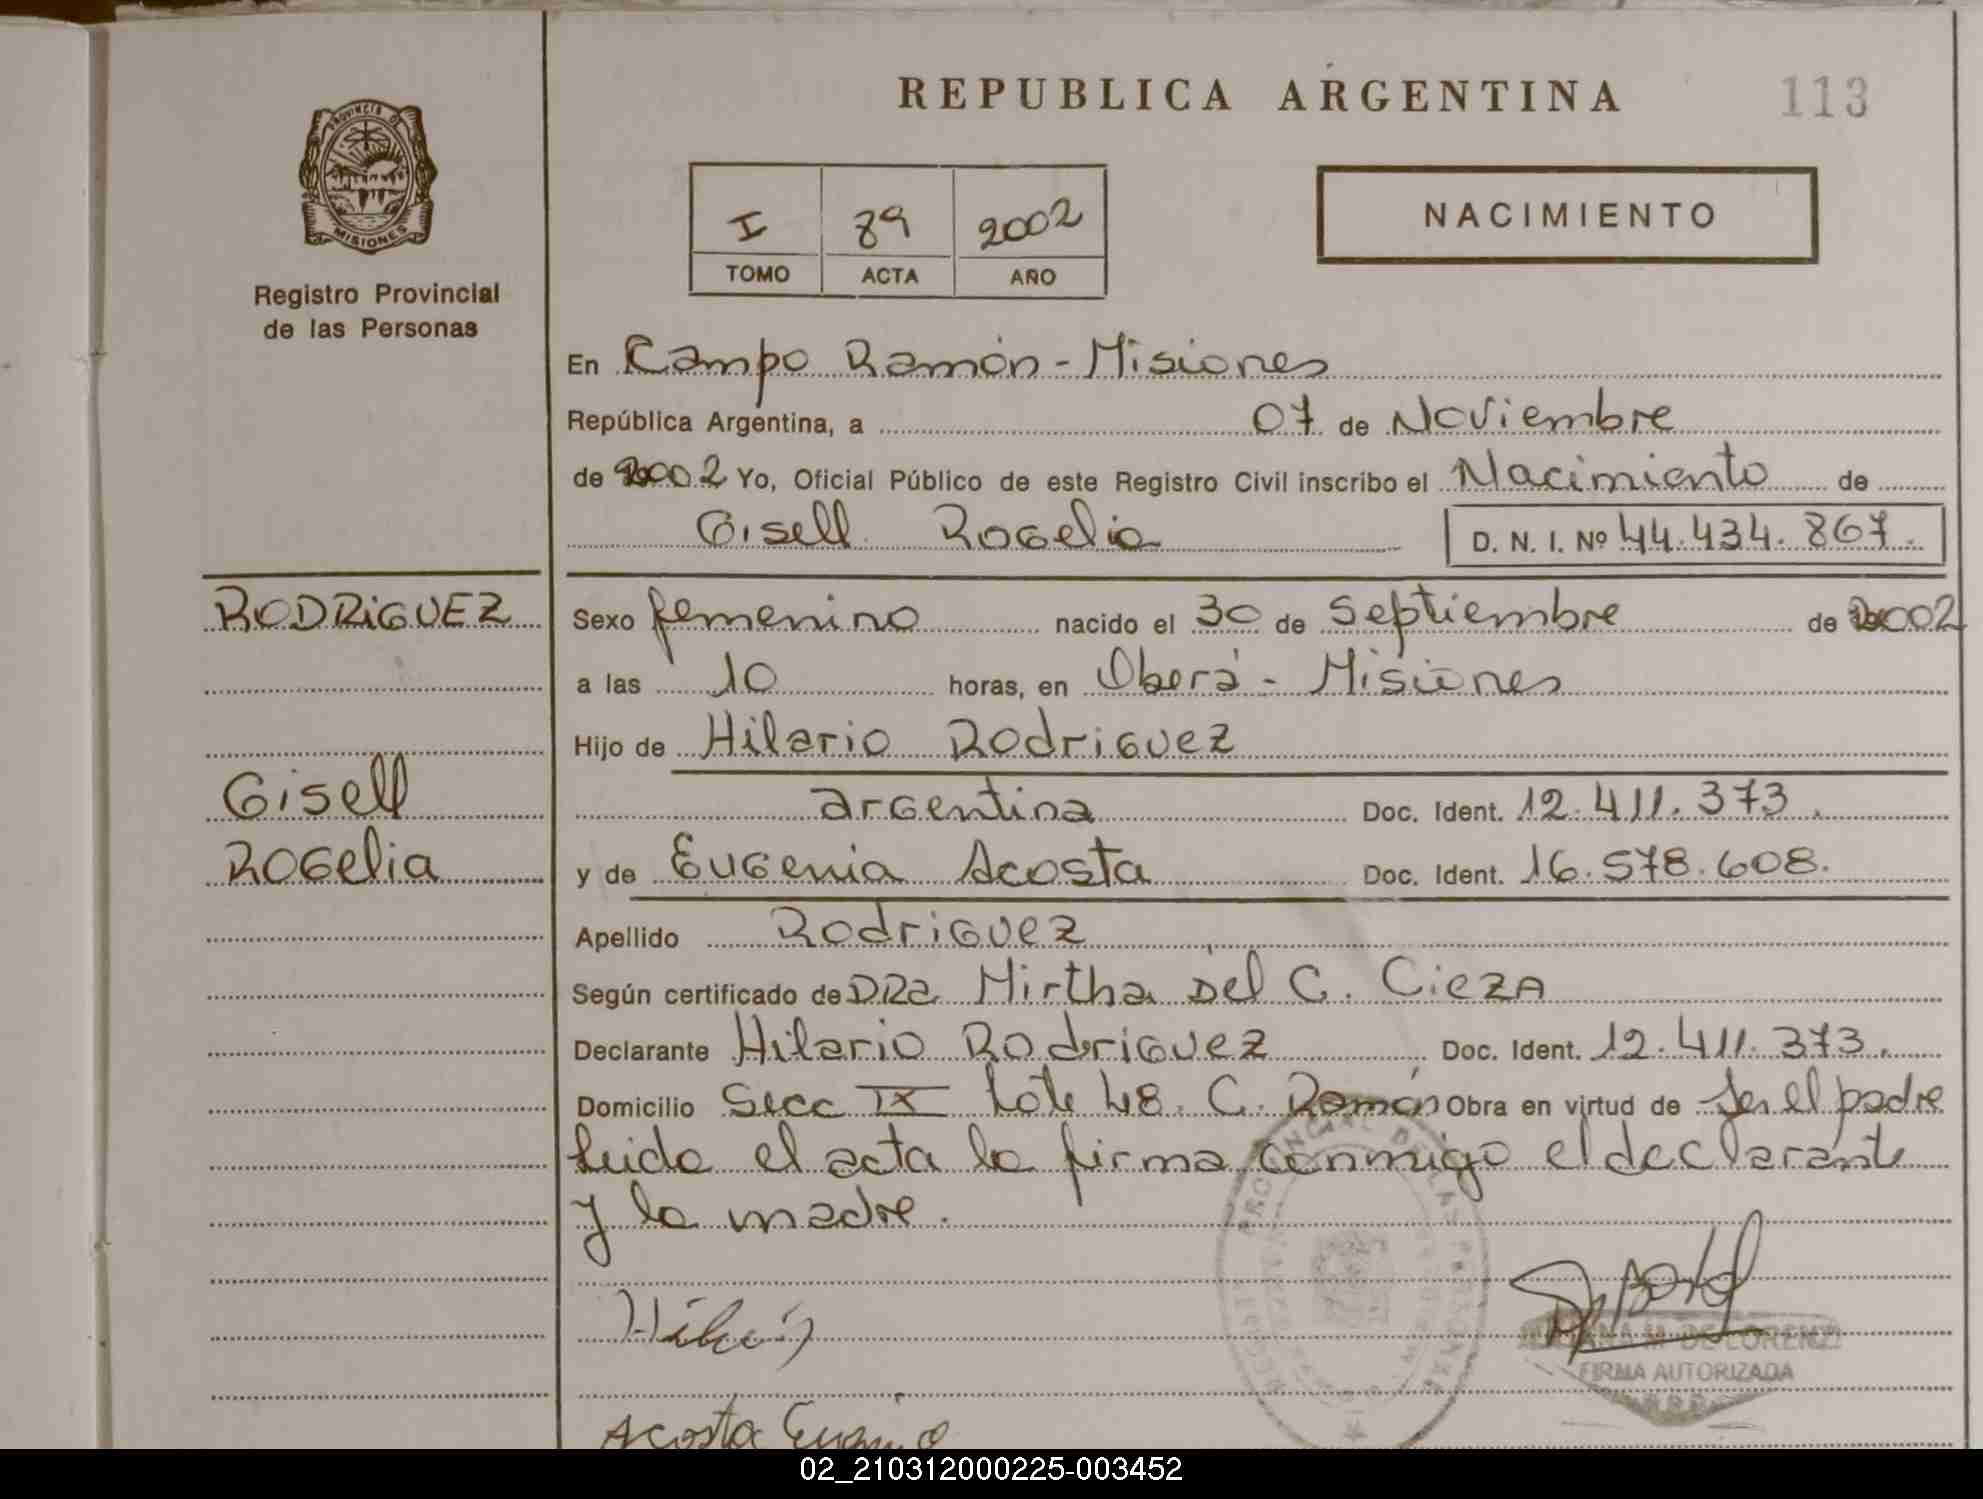 REPUBLICA ARGENTINA
113
PROVINCIA DE
MISIONES
Registro Provincial
de las Personas
I 89 2002
TOMO ACTA AÑO
NACIMIENTO
En Campo Ramón - Misiones
República Argentina, a 07 de Noviembre
de 2002 Yo, Oficial Público de este Registro Civil inscribo el Nacimiento de
Gisell Rogelia D. N. I. Nº 44.434.867.
RODRIGUEZ
Sexo femenino nacido el 30 de Septiembre de 2002
a las 10 horas, en Oberá - Misiones
Hijo de Hilario Rodriguez
Gisell
argentina Doc. Ident. 12.411.373.
Rogelia
y de Eugenia Acosta Doc. Ident. 16.578.608.
Apellido Rodriguez
Según certificado de DRa Mirtha Del C. Cieza
Declarante Hilario Rodriguez Doc. Ident. 12.411.373.
Domicilio Secc IX Lote 48. C. Ramón Obra en virtud de ser el padre
Leida el acta la firma conmigo el declarante
y la madre.
M. DE LORENZI
FIRMA AUTORIZADA
Acosta Eugenia
02_210312000225-003452